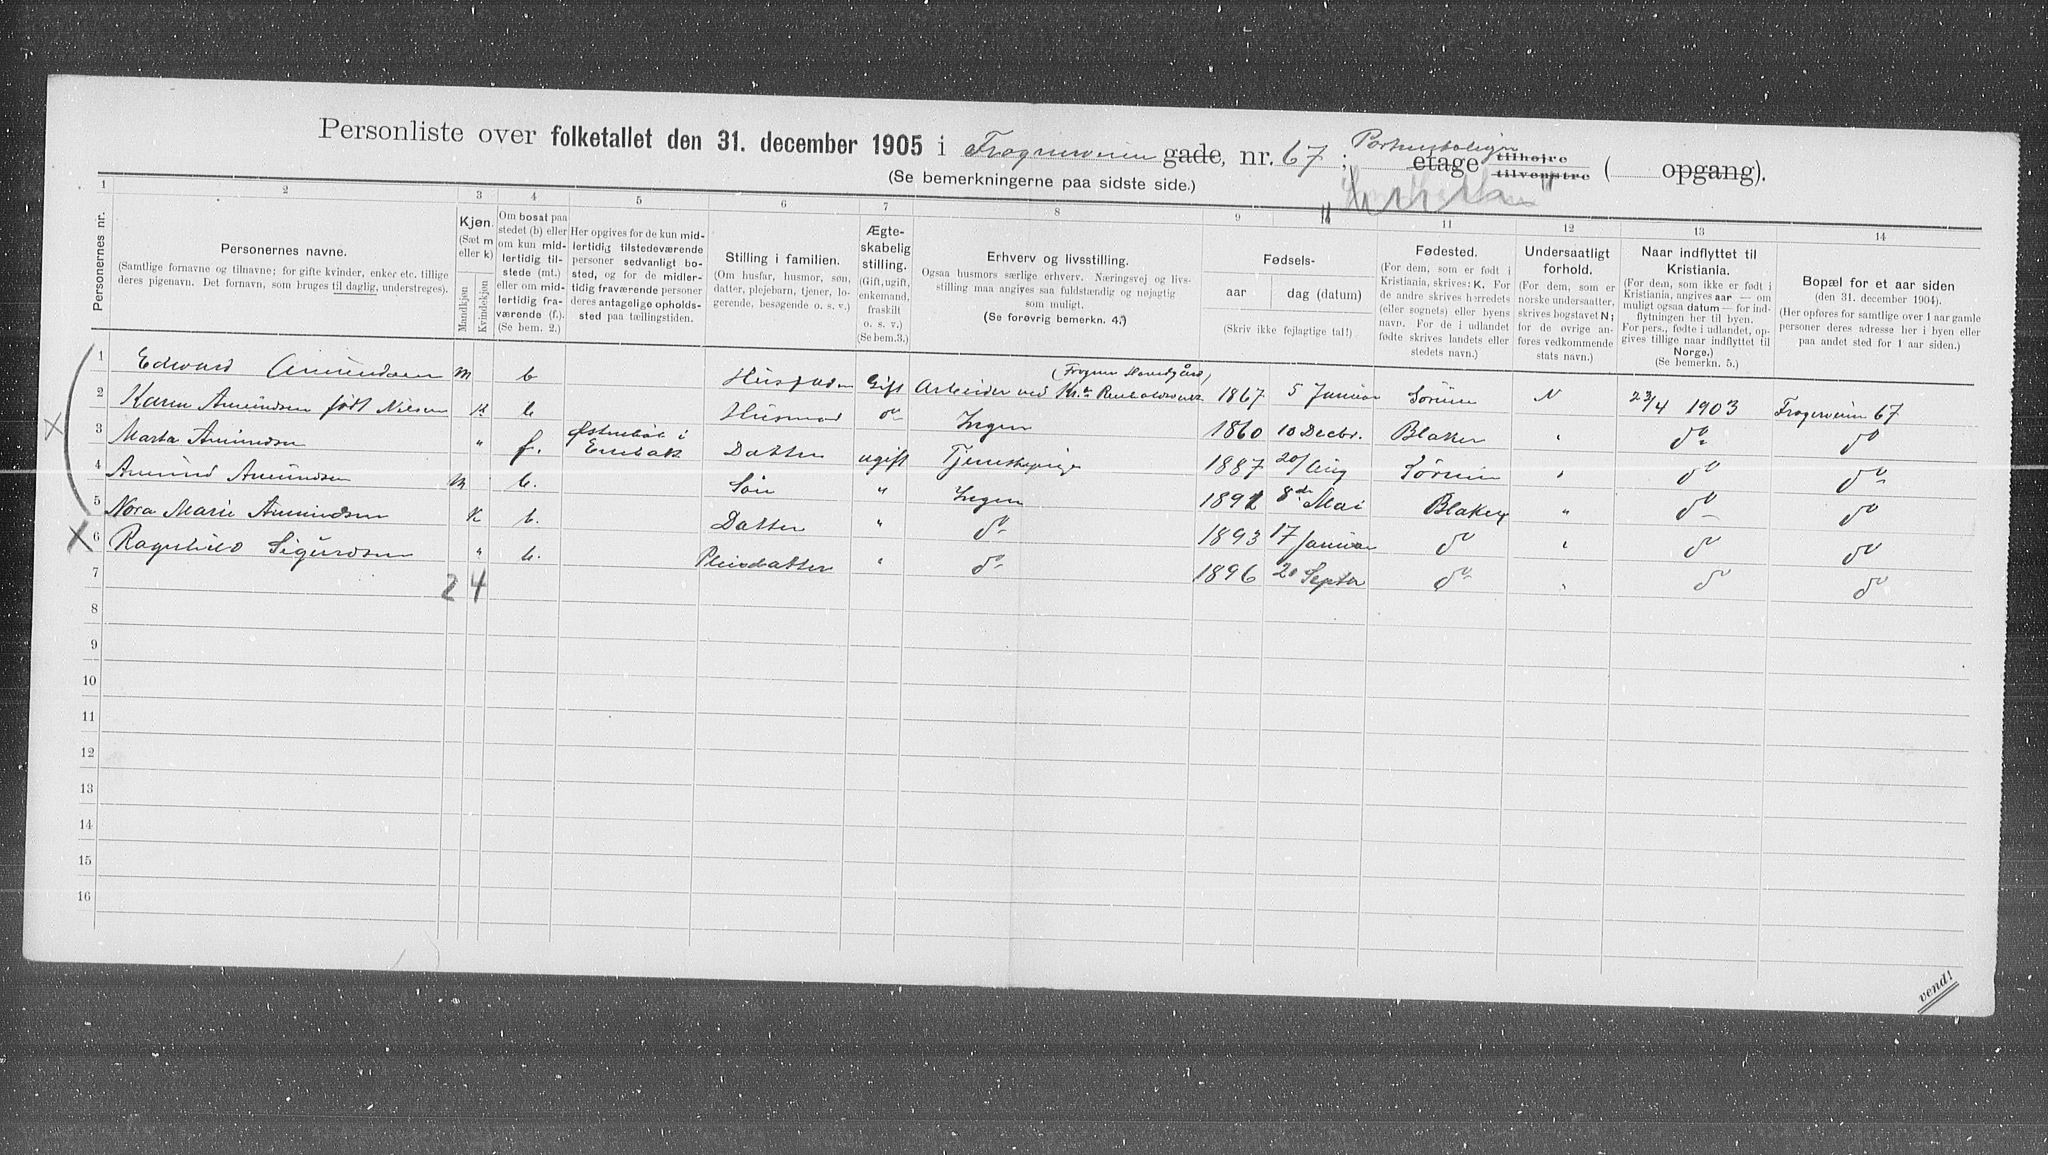 Personliste over folketallet den 31. december 1905 i Frognerveien gade, nr. 67; Portnerboligen etage tilhøjre tilvenstre ( opgang).
(Se bemerkningerne paa sidste side.)
1 2 3 4 5 6 7 8 9 10 11 12 13 14
Personernes nr.
Personernes navne.
(Samtlige fornavne og tilnavne; for gifte kvinder, enker etc. tillige
deres pigenavn. Det fornavn, som bruges til daglig, understreges).
Kjøn.
(Sæt m
eller k)
Mandkjøn
Kvindekjøn
Om bosat paa
stedet (b) eller
om kun mid-
lertidig til-
stede (mt.)
eller om mid-
lertidig fra-
værende (f.).
(Se bem. 2.)
Her opgives for de kun mid-
lertidig tilstedeværende
personer sedvanligt bo-
sted, og for de midler-
tidig fraværende personer
deres antagelige opholds-
sted paa tællingstiden.
Stilling i familien.
(Om husfar, husmor, søn,
datter, plejebarn, tjener, lo-
gerende, besøgende o. s. v.)
Ægte-
skabelig
stilling.
(Gift, ugift,
enkemand,
fraskilt
o. s. v.)
(Se bem.3.)
Erhverv og livsstilling.
Ogsaa husmors særlige erhverv. Næringsvej og livs-
stilling maa angives saa fuldstændig og nøjagtig
som muligt.
(Se forøvrig bemerkn. 4.)
Fødsels-
aar
dag (datum)
(Skriv ikke fejlagtige tal!)
Fødested.
(For dem, som er født i
Kristiania, skrives: K. For
de andre skrives herredets
(eller sognets) eller byens
navn. For de i udlandet
fødte skrives landets eller
stedets navn.)
Undersaatligt
forhold.
(For dem, som er
norske undersaatter,
skrives bogstavet N;
for de øvrige an-
føres vedkommende
stats navn.)
Naar indflyttet til
Kristiania.
(For dem, som ikke er født i
Kristiania, angives aar — om
muligt ogsaa datum — for ind-
flytningen her til byen.
For pers., fødte i udlandet, op-
gives tillige naar indflyttet til
Norge.)
(Se bemerkn. 5.)
Bopæl for et aar siden
(den 31. december 1904).
(Her opføres for samtlige over 1 aar gamle
personer deres adresse her i byen eller
paa andet sted for 1 aar siden.)
1 Edward Amundsen M b Husfader Gift Arbeider ved Kr.a Renholdsverk (Frogner Hovedgård) 1867 5 Januar Sørum N 23/4 1903 Frognerveien 67
2 Karen Amundsen født Nielsen K b Husmod do Ingen 1860 10 Decbr. Blaker " do do
3 Marta Amundsen " f. Østenbøl i Enebak Datter ugift Tjenestepige 1887 20/Aug Sørum " do do
4 Amund Amundsen M b. Søn " Ingen 1891 8de Mai Blaker " do do
5 Nora Marie Amundsen K b. Datter " do 1893 17 Januar do " do do
6 Ragnhild Sigurdsen " b. Pleiedatter " do 1896 20 Septbr do " do do
7
2 4
8
9
10
11
12
13
14
15
16
vend!